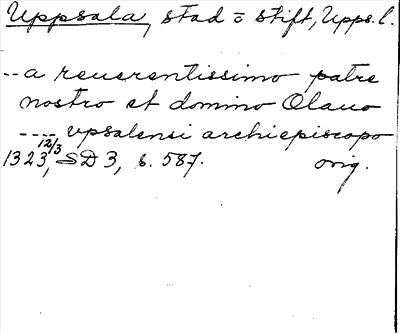 Uppsala, stad o stift, Upps. l.
-- a reuerentissimo patre
nostro et domino Olauo
---- vpsalensi archiepiscopo
1323 12/3, SD 3, s. 587. orig.